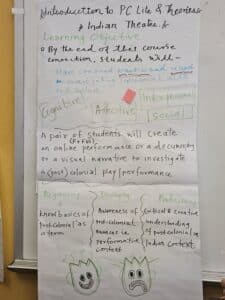 Introduction to PC Lite & Theories
Indian Theatre
Learning Objective
By the end of this course
connection, students will —
Cognitive
Affective
Interpersonal
Social
A pair of students will create
an online performance or a documentary
or a visual narrative to investigate
A (post) colonial play/performance
Beginning
Developing
Proficiency
Know basics of
postcolonial as
a term
Awareness of
postcolonial
nuances in
performative
context
Critical & creative
understanding
of postcolonial in
Indian context